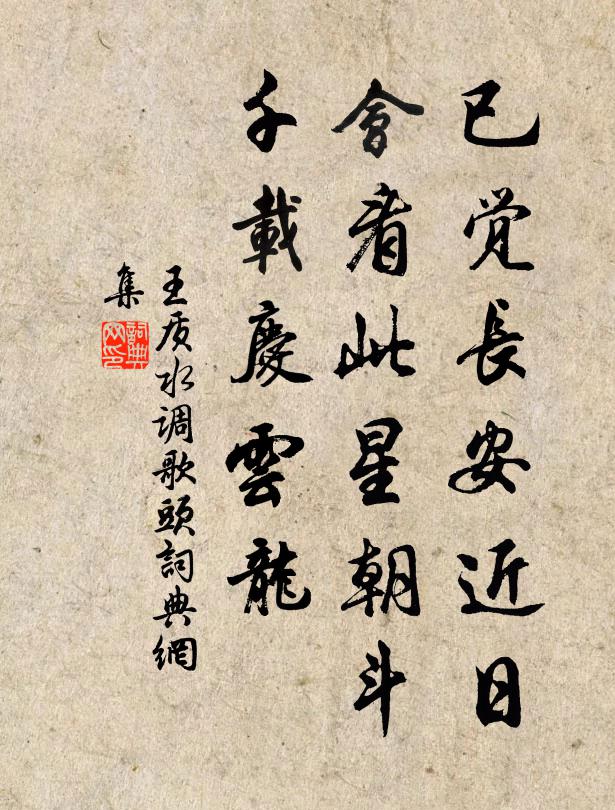 已觉長安近日
會看此星朝斗
千載慶雲龍
王质水调歌頭詞典網
集
詞典网印